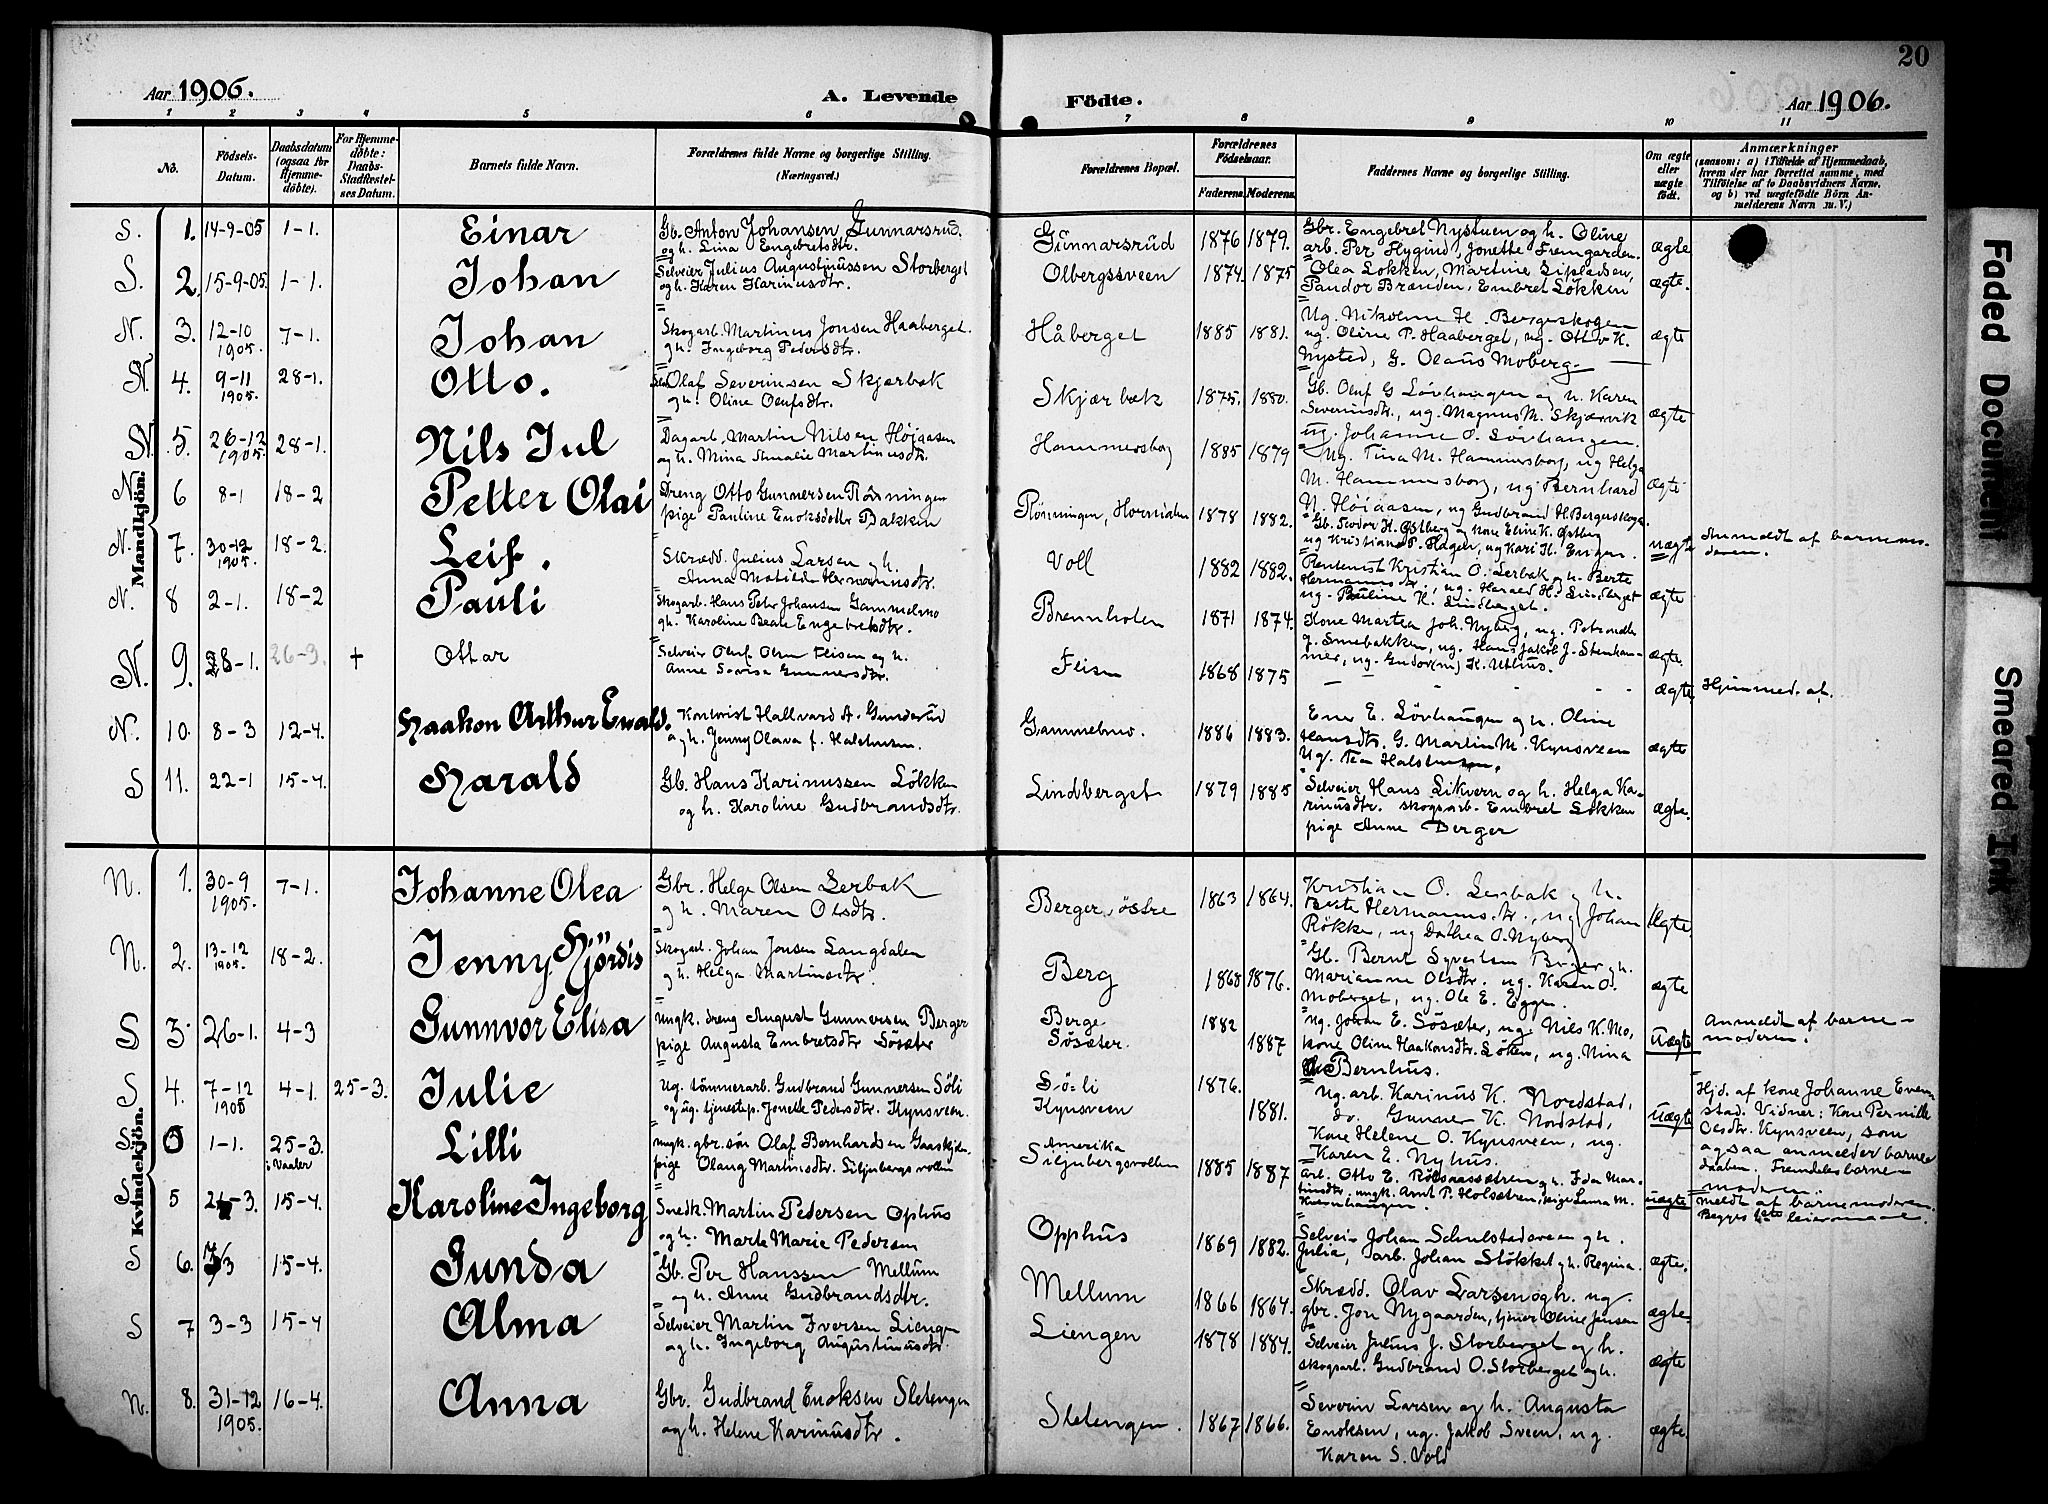 20
Aar 1906.
A. Levende Födte.
Aar 1906.
1 2 3 4 5 6 7 8 9 10 11
No.
Födsels-Datum.
Daabsdatum (ogsaa for Hjemmedöbte).
For Hjemmedöbte: Daabs-Stadfæstelses Datum.
Barnets fulde Navn.
Forældrenes fulde Navne og borgerlige Stilling. (Næringsvei.)
Forældrenes Bopæl.
Forældrenes Födselsaar.
Faderens. Moderens.
Faddernes Navne og borgerlige Stilling.
Om ægte eller uægte födt.
Anmærkninger (saasom: a) i Tilfælde af Hjemmedaab, hvem der har forrettet samme, med Tilföielse af to Daabsvidners Navne, og b) ved uægtefödte Börn Anmelderens Navn m. V.)
Mandkjön.
S. 1. 14-9-05 1-1. Einar
Gb. Anton Johansen Gunnarsrud.
og h. Lina Engebretsdtr.
Gunnarsrud 1876 1879.
Gbr. Engebret Nystuen og h. Oline
arb. Per Flygind, Jonette Fremgarden.
ægte
S. 2. 15-9-05. 1-1. Johan
Selveier Julius Augustinussen Storberget
og h. Karen Karinusdtr.
Olbergssveen 1874. 1875
Olea Løkken, Martine
Brænden, Embret Løkken
ægte.
N. 3. 12-10 1905. 7-1. Johan
Skogarb. Martinus Jonsen Haaberget.
g h. Ingeborg Pedersdtr.
Håberget 1885 1881.
Ug. Nikoline H. Bergeskogen
ug. Oline P. Haaberget, ug. Otto K.
Nysted, G. Olaus Moberg.
ægte
N. 4. 9-11 1905. 28-1. Otto.
Olaf Severinsen Skjærbæk
g h. Oline Olufsdtr.
Skjærbæk 1875. 1880.
Gb. Oluf G Løvhaugen og h. Karen
Severinsdtr., ug. Magnus M. Skjærvik
ug. Johanne O. Løvhaugen.
ægte
N. 5. 26-12 1905. 28-1. Nils Jul
Dagarb. Martin Nilsen Højaasen
og h. Mina Amalie Martinusdtr.
Hammersborg 1885 1879
Ug. Tina M. Hammersborg, ug Helga
M. Hammersborg, ug Bernhard
N. Høiaasen, ug Gudbrand H Bergeskoge.
ægte
N. 6 8-1 18-2 Petter Olai
Dreng Otto Gunnersen Rønningen
pige Pauline Enoksdatter Bakken
Rønningen, Hornidalen 1878 1882.
Gb. Teodor H. Østberg og kone Elin K. Østberg
ug Kristian P. Hagen, ug Kari H. Engen.
uægte
Anmeldt af barnemoderen.
N. 7. 30-12 1905. 18-2. Leif.
Skrædd. Julius Larsen g h.
Anna Matilde Hermannsdtr.
Voll 1882 1882.
Rentenist Kristian O. Lerbak g h. Berte
Hermannsdtr, ug. Harald H. Lindberget
ug. Pauline H. Lindberget.
ægte
N. 8 2-1. 18-2 Pauli
Skogarb. Hans Peter Johansen Gammelmo
g h. Karoline Beate Engebretsdtr.
Brennholen 1871 1874.
Kone Martea Joh. Nyberg, ug. Petronelle
J. Smebakken, ug. Hans Jakob J. Stenhammer, ug. Gudor(m) K. Uthus.
ægte.
N. 9. 28-1. 26-3. + Ottar
Selveier Oluf Olsen Fleisen og h.
Anne Lovisa Gunnersdtr.
Fleisn 1868 1875
ægte.
Hjemmed. af.
N. 10. 8-3 12-4. Haakon Arthur Ewald.
Kontorist Hallvard A. Gunderud
og h. Jenny Olava f. Halshusen.
Gammelmo. 1886 1883.
Ener E. Løvhaugen og h. Oline
Hansdtr. G. Martin M. Kynsveen
Ug. Tea Halshusen.
ægte
S 11. 22-1 15-4. Harald
Gb. Hans Karinussen Løkken
og h. Karoline Gudbrandsdtr.
Lindberget 1879 1885
Selveier Hans Likvern og h. Helga Karinusdtr. skogsarb. Embret Løkken
pige Anne Berger
ægte.
Kvindekjön.
N. 1. 30-9 1905. 7-1. Johanne Olea
Gbr. Helge Olsen Lerbak
g h. Maren Olsdtr.
Berger, østre 1863 1864.
Kristian O. Lerbak g h.
Berte Hermannsdtr., ug Johan
Røkke, ug Dorthea O. Nyberg
Ægte.
N. 2. 13-12 1905. 18-2. Jenny Hjördis
Skogarb. Johan Jonsen Langdalen
g h. Helga Martinsdtr.
Berg 1868 1876.
Gb. Bernt Syversen Berger g h.
Marianne Olsdtr. ug. Karen O.
Moberget, ug. Ole E. Eggen.
ægte
S 3. 26-1. 4-3 Gunnvor Elisa
Ungk. dreng August Gunnersen Berger
pige Augusta Embretsdtr Søsæter
Berge Søsæter. 1882 1887
ug. Johan E. Søsæter, ug. Nils K. Mo,
kone Oline Haakonsdtr. Løken, ug. Nina
Bernhus.
uægte
Anmeldt af barnemoderen.
S. 4. 7-12 1905 4-1. 25-3. Julie
Ug. tömmerarb. Gudbrand Gunnersen Søli
og ug. tjenestep. Jonette Pedersdtr. Kynsveen.
Søli Kynsveen 1876. 1881.
Ug. arb. Karinus K. Nordstad,
do. Gunner K. Nordstad,
Kone Helene O. Kynsveen, ug.
Karen E. Nyhus.
uægte
Hjd. af kone Johanne Evenstad. Vidner: Kone Pernille
Olsdtr. Kynsveen, som
ogsaa anmelder barnedaaben. Fremdeles barnemoderen.
S. 1-1. 25-3. i Vaaler Lilli
ungk. gbr.søn Olaf Bernhardsen
pige Olaug Martinsdtr. Siljubergsvollen
Amerika Siljubergsvollen 1885 1887
arb. Otto E. g h. Ida Martinsdtr, ungk. Arnt P. Holsætren, pige Laura M.
uægte
meldt af barnemoderen.
Begges 1ste leiermaal.
S 5 -3. 15-4. Karoline Ingeborg
Snedk. Martin Pedersen Ophus
og h. Marte Marie Pedersen
Opphus 1869 1882.
Selveier Johan Schulstadsveen g h.
Julia, arb. Johan Støkket g h. Regina.
ægte.
S 6. 3 15-4. Gunda
Gb. Per Hanssen Mellum
og h. Anne Gudbrandsdtr.
Mellum 1866 1864.
Skrædd. Olav Larsen og h. ug.
gbr. Jon Nygaarden, tjener Oline Jensen
ægte.
S 7 3-3 15-4 Alma
Selveier Martin Iversen Liengen
og h. Ingeborg Augustinusdtr.
Liengen 1878 1884.
Selveier Julius J. Storberget og h.
skogsarb. Gudbrand O. Storberget og h.
ægte
N. 8. 31-12 1905. 16-4. Anna
Gbr. Gudbrand Enoksen Sletengen
og h. Helene Karinusdtr.
Sletengen. 1867 1866.
Severin Larsen og h. Augusta
Enoksen, ug. Jakob Sveen, ug.
Karen S. Vold
ægte.
Faded Document
Smeared Ink